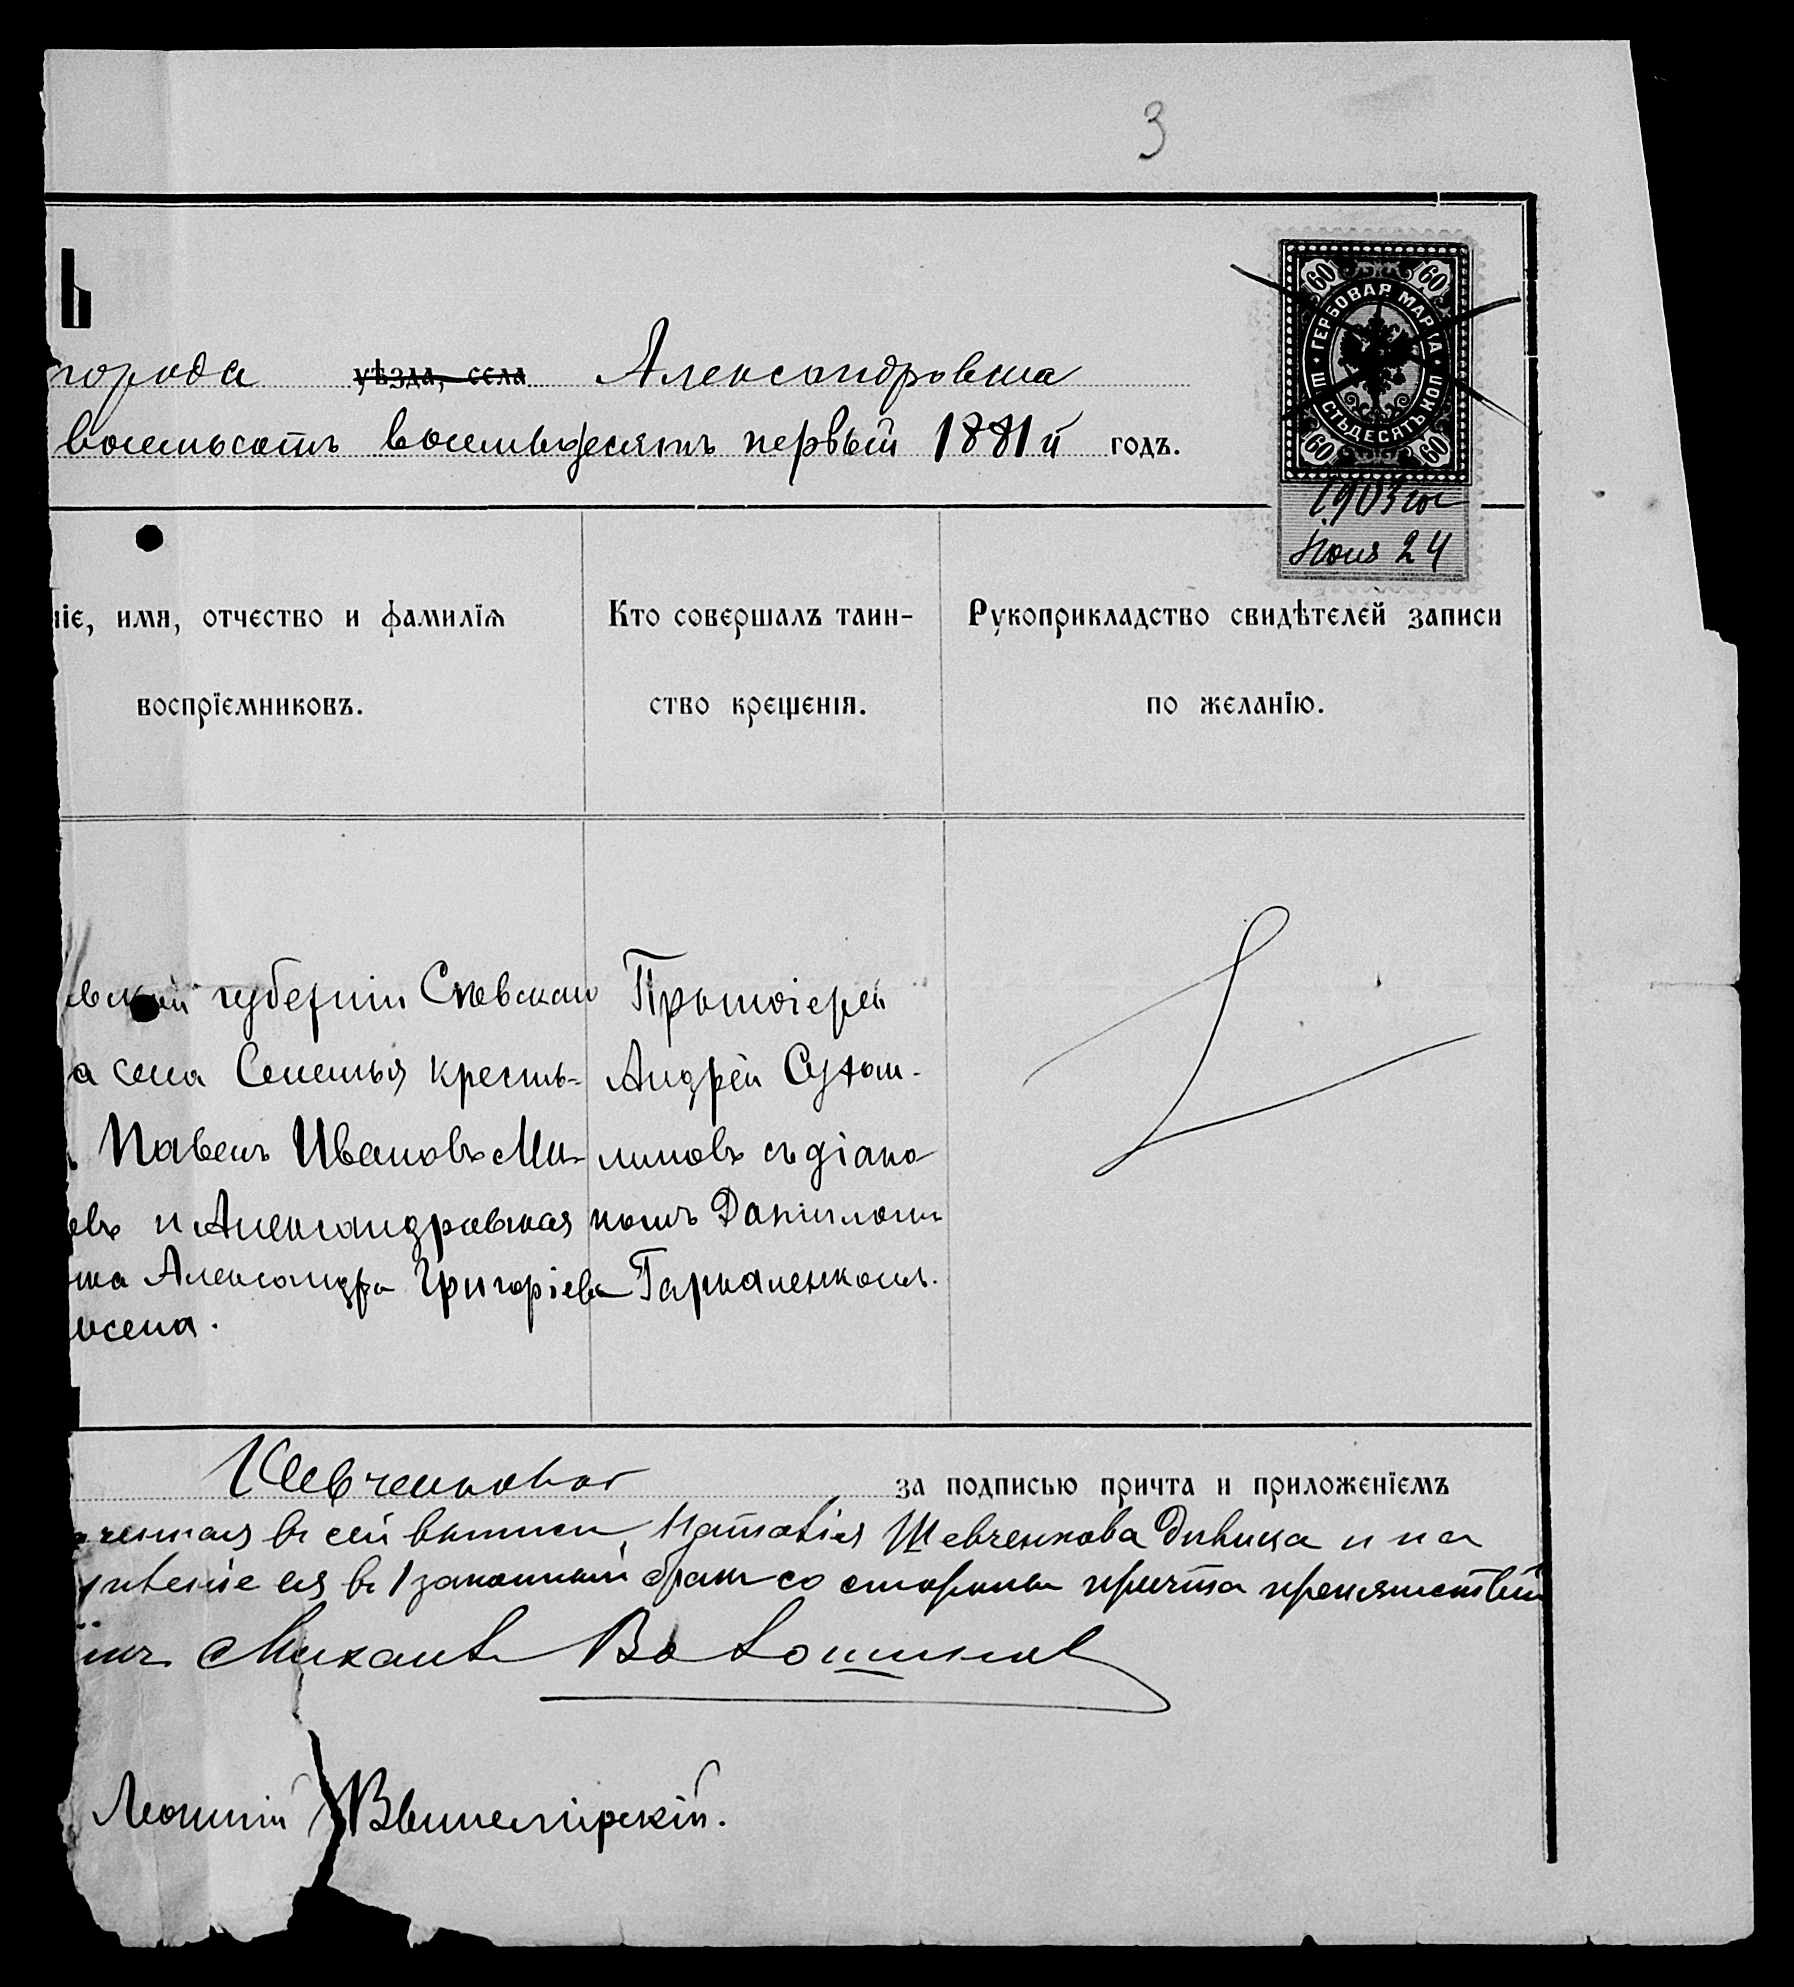 3
Ь
города уѣзда, села Александровска
восемьсотъ восемьдесятъ первый 1881й годъ.
60 60
ГЕРБОВАЯ МАРКА
ШЕСТЬДЕСЯТЪ КОП
60 60
1903го
Іюня 24
ніе, имя, отчество и фамилія
воспріемниковъ.
Кто совершалъ таин-
ство крещенія.
Рукоприкладство свидѣтелей записи
по желанію.
губерніи Сѣвскаго
а села кресть-
Павелъ Ивановъ Ми-
евъ и Александровская
Александра Григоріева
Протоіерей
Андрей
съ діако
номъ Даніиломъ
Гаркаленкомъ.
Шевченковой за подписью причта и приложеніемъ
ченная въ сей выписи, Наталія Шевченкова дѣвица и на
ея въ 1 законный бракъ со стороны причта препятствій
Михаилъ
Леонтій